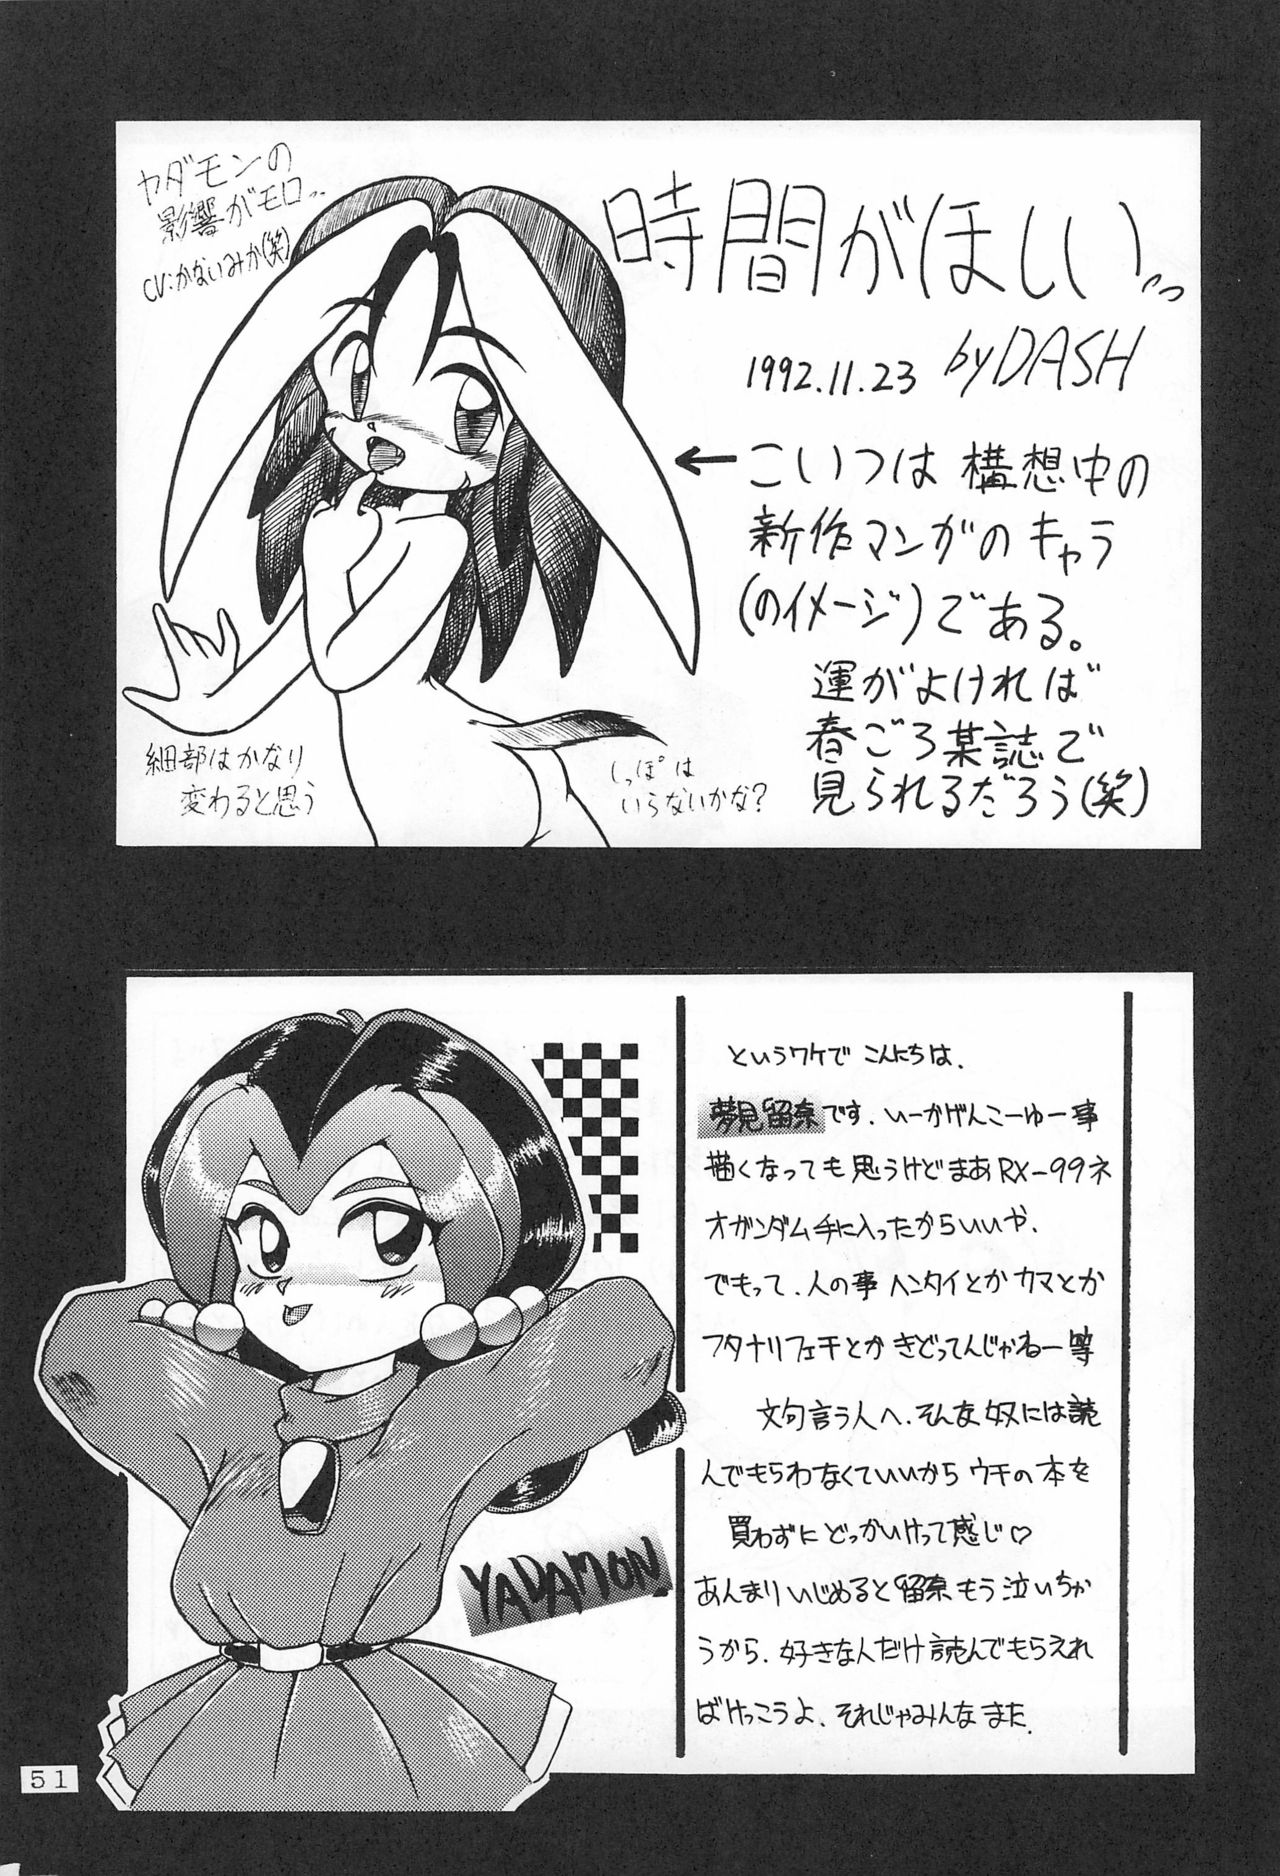 ヤダモンの
影響がモロ‥
CV:かないみか(笑)
時間がほしい‥
1992.11.23 by DASH
←こいつは構想中の
新作マンガのキャラ
(のイメージ)である。
運がよければ
春ごろ某誌で
見られるだろう(笑)
細部はかなり
変わると思う
しっぽは
いらないかな?
というワケで こんにちは.
夢見留奈です. いーかげんこーゆー事
描くなっても思うけどまあRX-99ネ
オガンダム手に入ったからいいや.
でもって. 人の事 ヘンタイとか カマとか
フタナリフェチとか きどってんじゃねー等
文句言う人へ. そんな奴には読
んでもらわなくていいから ウチの本を
買わずに どっかいけって感じ♡
あんまりいじめると留奈もう泣いちゃ
うから. 好きな人だけ読んでもらえれ
ばけっこうよ. それじゃみんなまた.
YADAMON
51